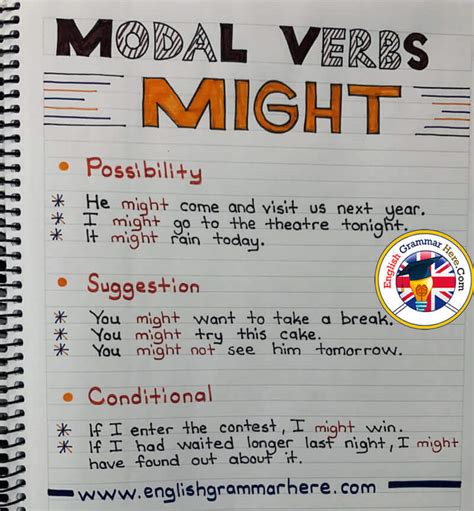 MODAL VERBS
MIGHT
• Possibility
* He might come and visit us next year.
* I might go to the theatre tonight.
* It might rain today.
• Suggestion
English Grammar Here.Com
* You might want to take a break.
* You might try this cake.
* You might not see him tomorrow.
• Conditional
* If I enter the contest, I might win.
* If I had waited longer last night, I might
have found out about it.
www.englishgrammarhere.com